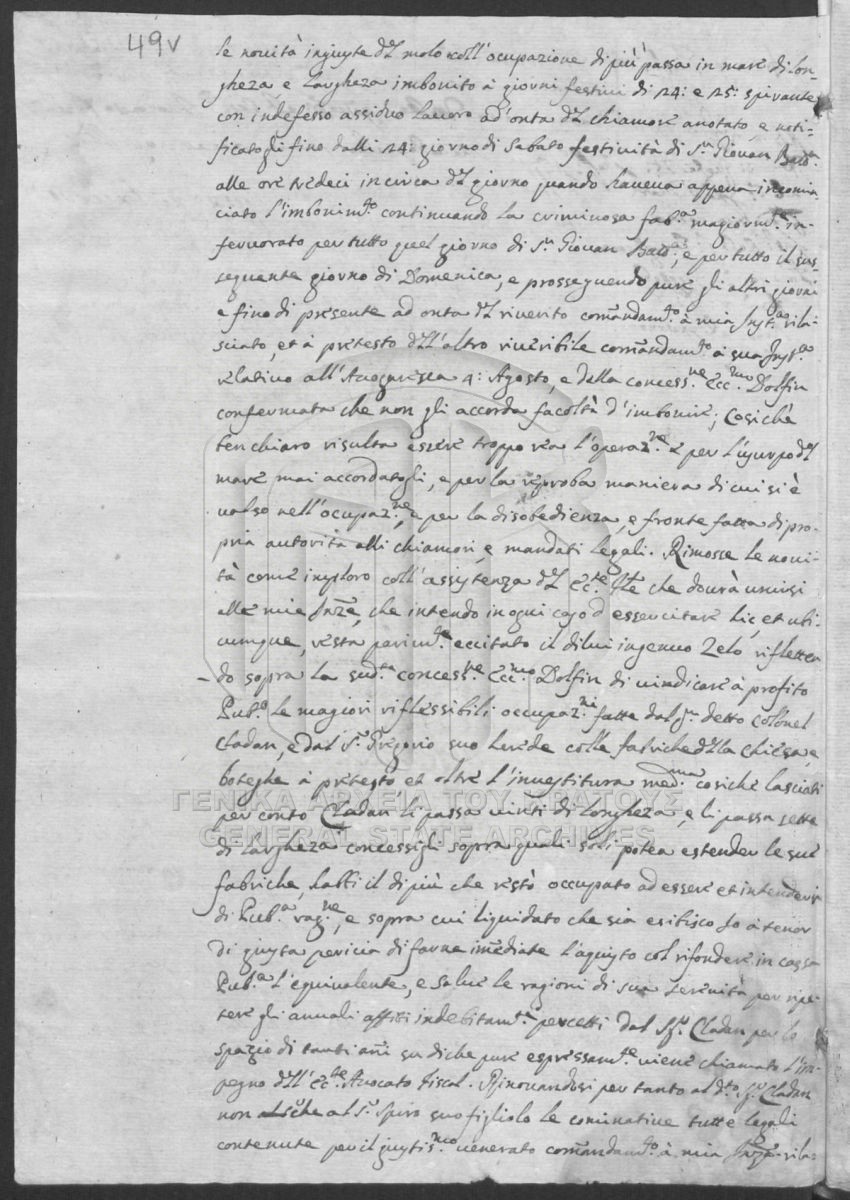 49v
le novità ingiuste dl molo coll'ocupazione di più passa in mare di lon-
gheza, e largheza imbonito à giorni festivi di 24: e 25: spirante
con indefesso assiduo lavoro ad'onta dl chiamore anotato, e noti-
ficatogli fino dalli 24: giorno di Sabato festività di Sn Giovan Batta
alle ore tredeci incirca dl giorno quando haveva appena incomin-
ciato l'imbonimto continuando la criminosa faba magiormte in-
fervorato per tutto quel giorno di Sn Giovan Batta; e per tutto il sus-
seguente giorno di Domenica, e prosseguendo pure gli altri giorni
e fino di presente ad onta dl riverito comandamto à mia Instza rila-
sciato, et à pretesto dll'altro riveribile comandamto à sua Instza
relativo all'Avogaresca 4: Agosto, e della concessne Eccmo Dolfin
confermata che non gli accorda facoltà d'imbonire; Cosichè
ben chiaro risulta essere troppo rea l'operazne e per l'usurpo dl
mare mai accordatogli, e per la reproba maniera di cui si è
valso nell'ocupazne, e per la disobedienza, e fronte fatta di pro-
pria autorità alli chiamori, e mandati legali. Rimosse le novi-
tà come imploro coll'assistenza dl Ecte Fle che dovrà unirsi
alle mie Inze, che intendo in ogni caso d essercitare hic, et ubi-
cumque, resta parimte eccitato il di lui ingenuo Zelo rifletten
do sopra la sudta concessne Eccmo Dolfin di vindicare à profito
Pubo le magiori riflessibili occupazni fatte dal qm detto Colonel
Cladan, e dal Sr Gregorio suo herede colle fabriche dlla chiesa, e
boteghe à pretesto, et oltre l'investitura medma cosiche lasciati
per conto Cladan li passa vinti di longheza, e li passa sette
di largheza concessigli sopra quali soli potea estender le sue
fabriche, habbi il di più che restò occupato ad essere et intendersi
di Puba ragne, e sopra cui liquidato che sia esibisco Io à tenor
di giusta pericia di farne imediate l'aquisto col rifondere in cassa
Puba l'equivalente, e salve le ragioni di sua serenità per ripe-
tere gli annuali affitti indebitamte percetti dal Sr Cladan per lo
spazio di tanti ani su di che pure espressamte viene chiamato l'im-
pegno dll'Ecte Avocato Fiscal. Rinovandosi per tanto al dto Sr Cladan
non che al Sr Spiro suo figliolo le cominative tutte legali
contenute per il giustismo venerato comandamto à mia Instza rila-
ΓΕΝΙΚΑ ΑΡΧΕΙΑ ΤΟΥ ΚΡΑΤΟΥΣ
GENERAL STATE ARCHIVES